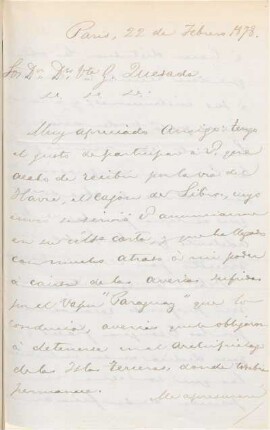 Paris, 22 de Febrero 1878.
Sor. Dn. Dr. Vte. G. Quesada
Muy apreciado Amigo: tengo
el gusto de participar à V. que
acabo de recibir por la via del
Havre, el cajon de Libros, cuyo
envio se sirvió V. anunciarme
en su carta, y que ha llegado
con mucho atraso à mi poder
à causa de las averias sufridas
por el Vapor "Paraguay" que lo
conducia, averias que le obligaron
à detenerse en el Archipielago
de las Islas Terceras, donde
permanece.
Me apresuro